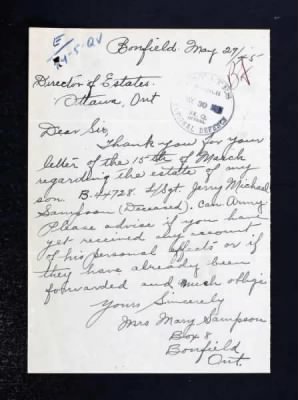 E
24-5-QV
Bonfield. May 29/45
BA
MAY 30
NATIONAL DEFENCE
Director of Estates.
Ottawa, Ont
Dear Sir,
Thank you for your
letter of the 15th of March
regarding the estate of my
son. B.44728. L/Sgt. Jerry Michael
Sampson (Deceased). Can. Army.
Please advise if you have
yet received any account
of his personal effects or if
they have already been
forwarded and much oblige
Yours Sincerely
Mrs Mary Sampson
Box 8
Bonfield
Ont.